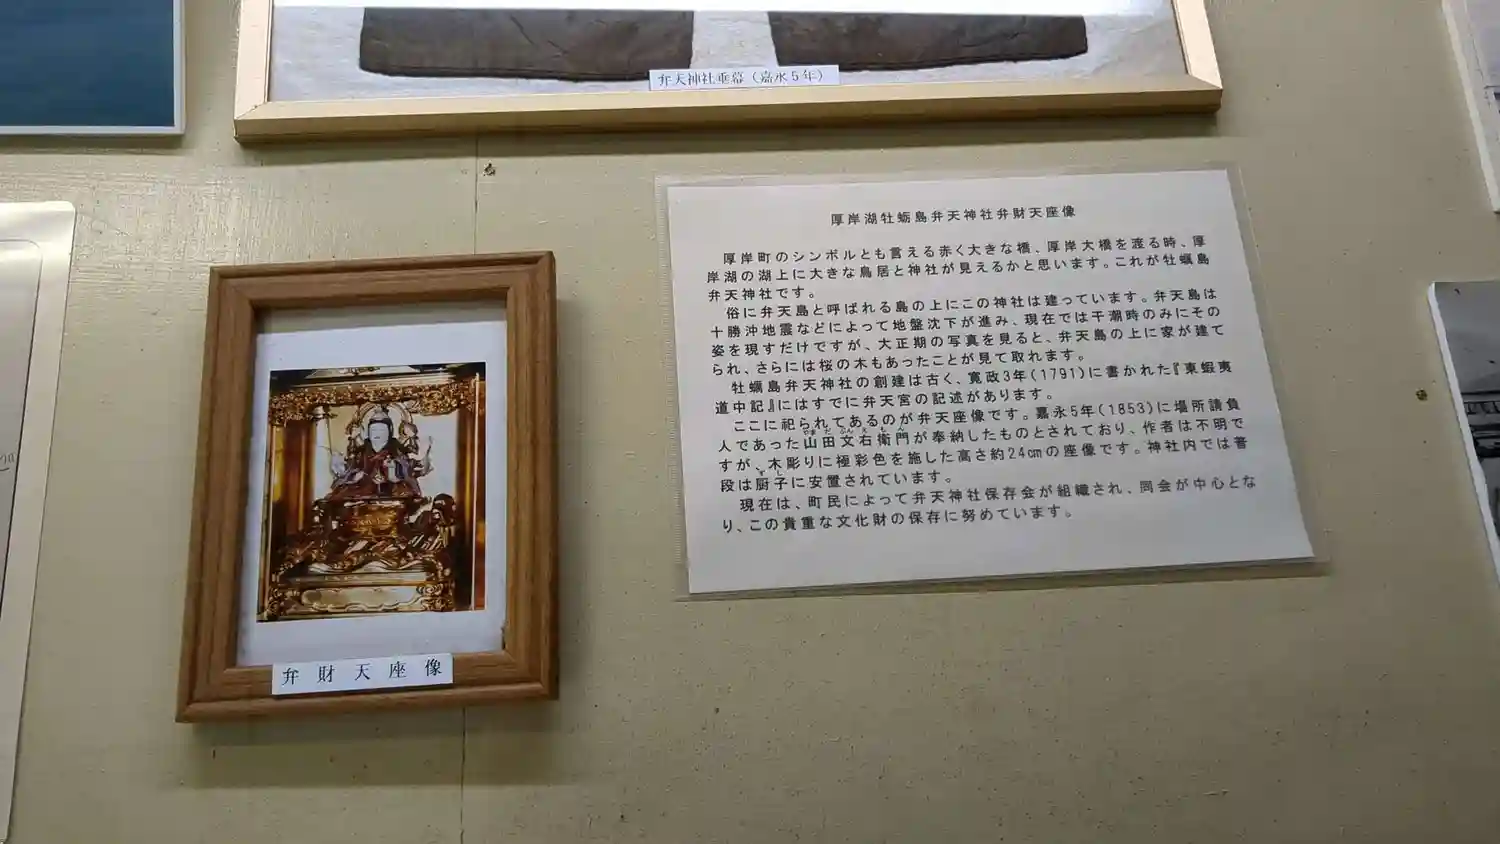 弁天神社垂幕（嘉永５年）
厚岸湖牡蛎島弁天神社弁財天座像
厚岸町のシンボルとも言える赤く大きな橋、厚岸大橋を渡る時、厚
岸湖の湖上に大きな鳥居と神社が見えるかと思います。これが牡蠣島
弁天神社です。
俗に弁天島と呼ばれる島の上にこの神社は建っています。弁天島は
十勝沖地震などによって地盤沈下が進み、現在では干潮時のみにその
姿を現すだけですが、大正期の写真を見ると、弁天島の上に家が建て
られ、さらには桜の木もあったことが見て取れます。
牡蠣島弁天神社の創建は古く、寛政3年(1791)に書かれた『東蝦夷
道中記』にはすでに弁天宮の記述があります。
ここに祀られてあるのが弁天座像です。嘉永5年(1853)に場所請負
やまだぶんえもん
人であった山田文右衛門が奉納したものとされており、作者は不明で
すが、木彫りに極彩色を施した高さ約24cmの座像です。神社内では普
ずし
段は厨子に安置されています。
現在は、町民によって弁天神社保存会が組織され、同会が中心とな
り、この貴重な文化財の保存に努めています。
弁財天座像